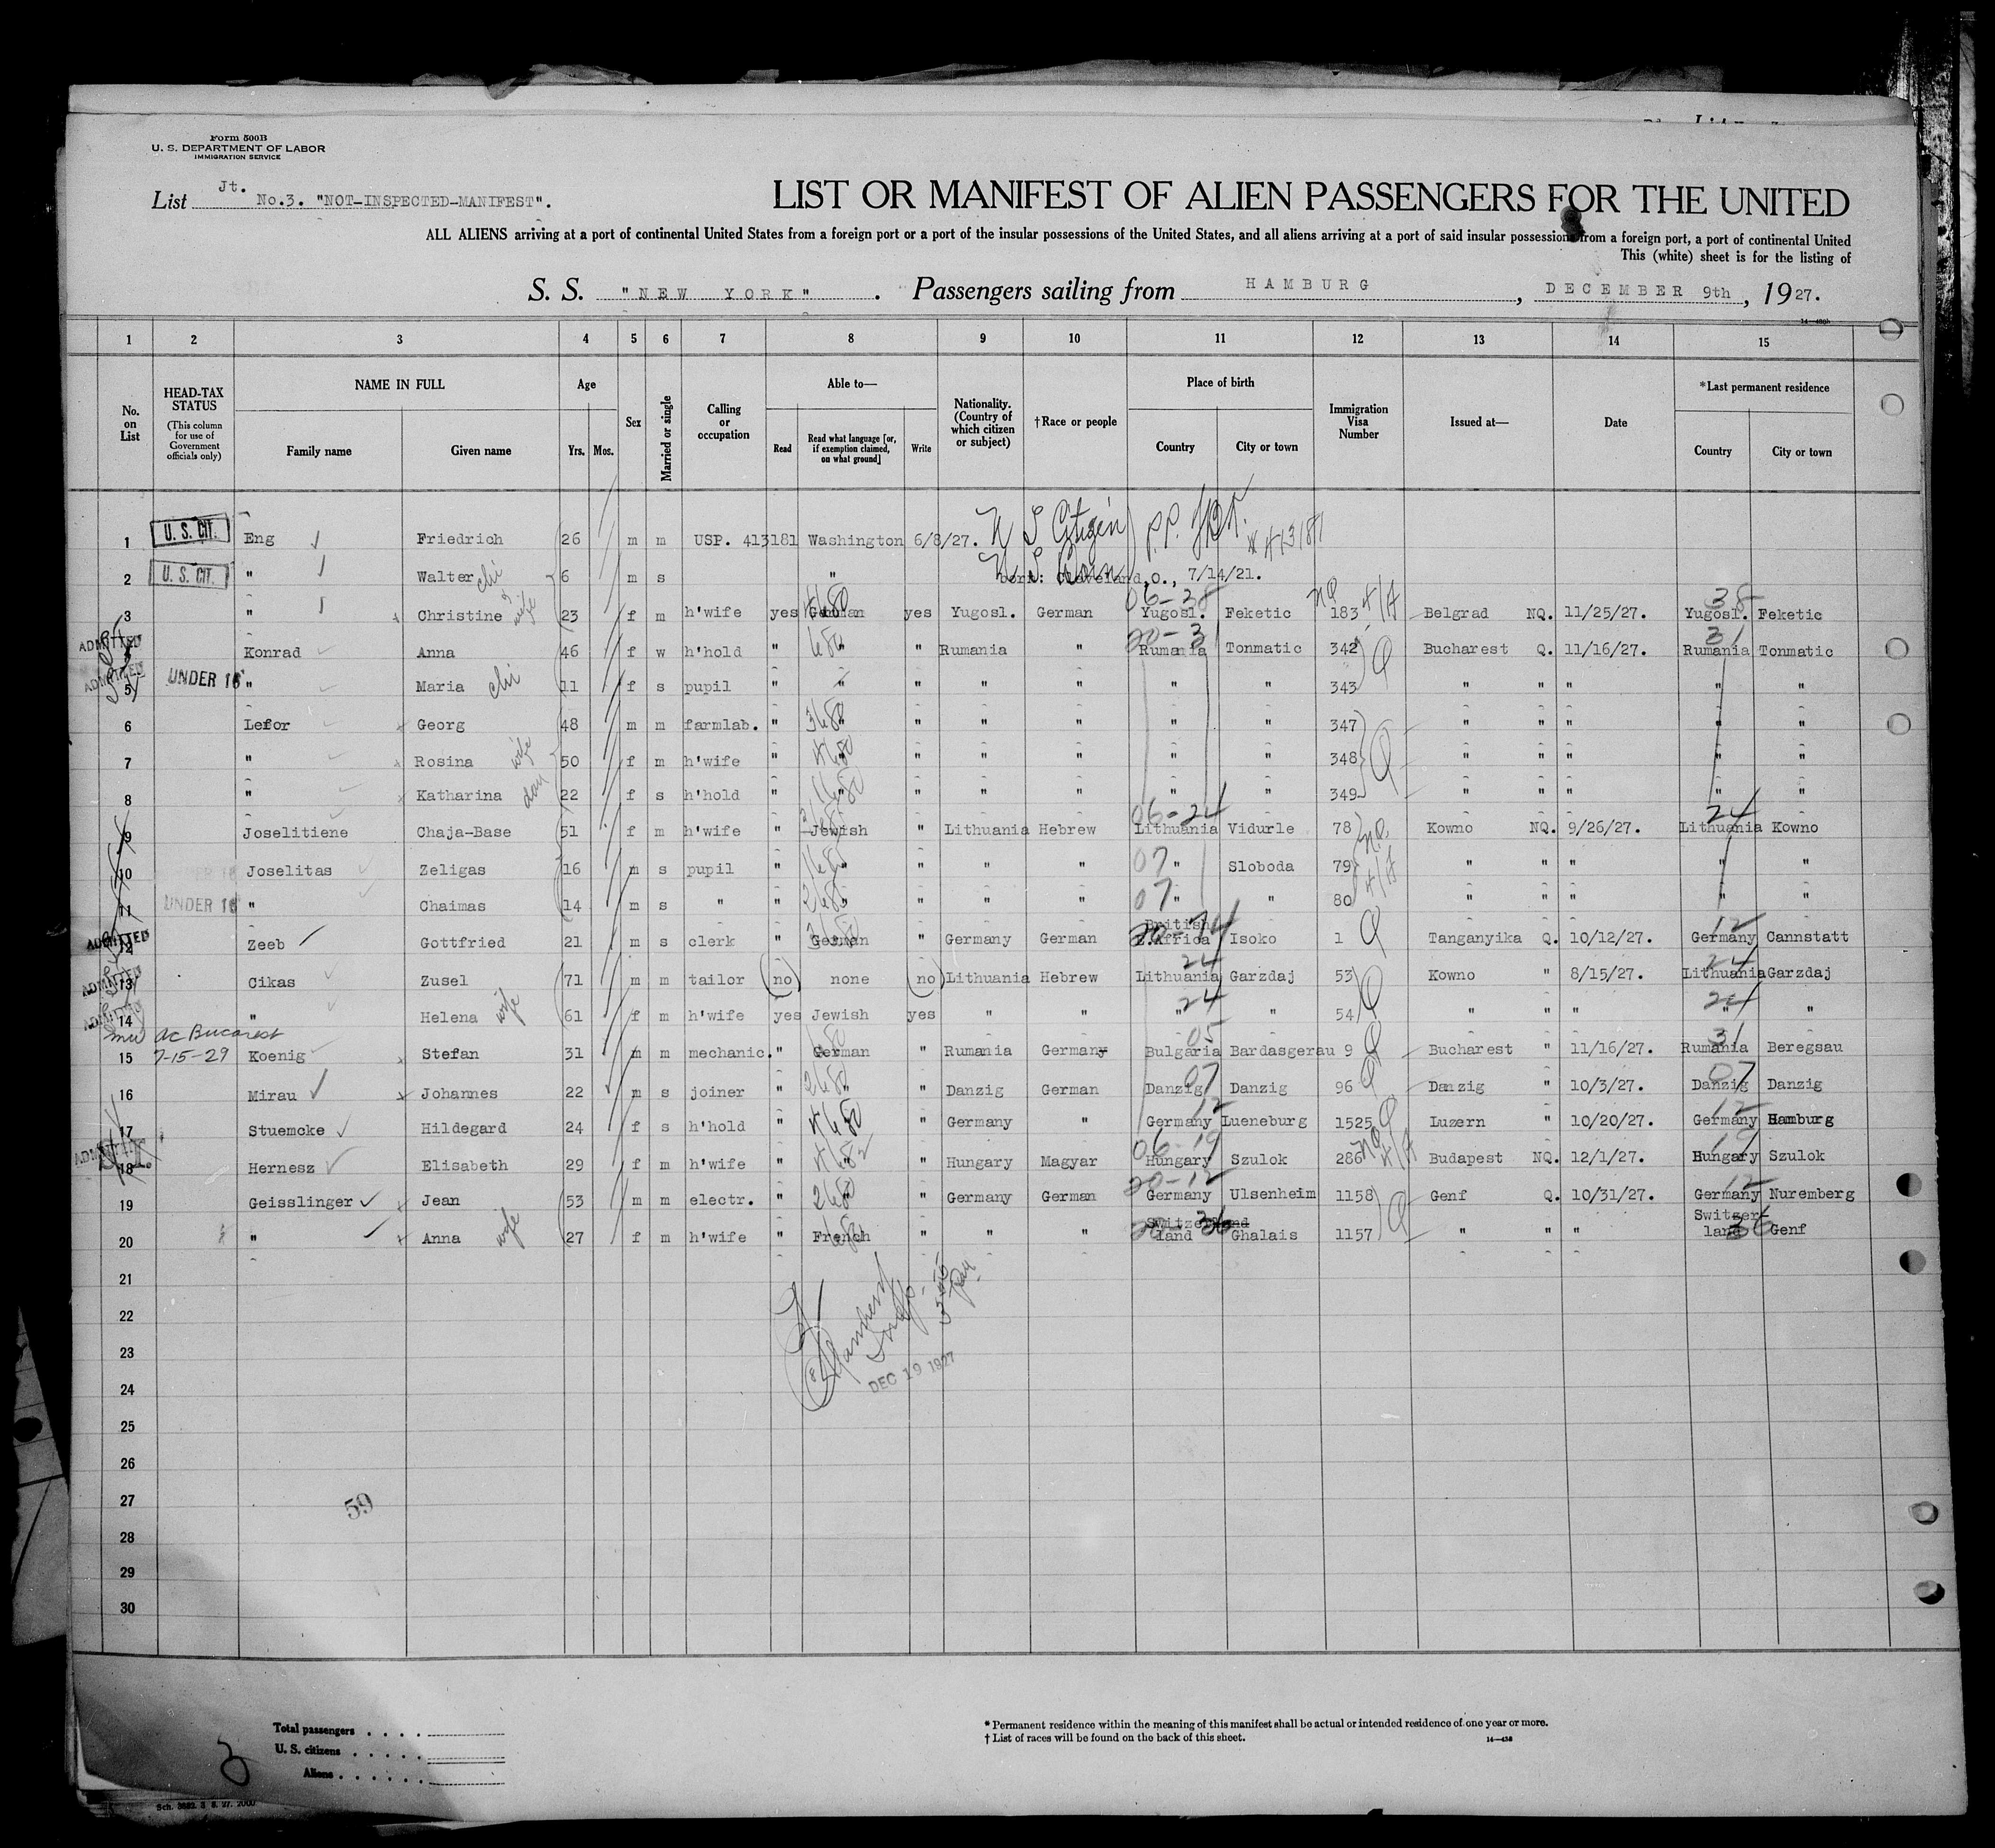 Form 500B
U. S. DEPARTMENT OF LABOR
IMMIGRATION SERVICE
List Jt. No.3. "NOT-INSPECTED-MANIFEST".
LIST OR MANIFEST OF ALIEN PASSENGERS FOR THE UNITED
ALL ALIENS arriving at a port of continental United States from a foreign port or a port of the insular possessions of the United States, and all aliens arriving at a port of said insular possessions from a foreign port, a port of continental United
This (white) sheet is for the listing of
S. S. "NEW YORK". Passengers sailing from HAMBURG, DECEMBER 9th, 1927.
1 2 3 4 5 6 7 8 9 10 11 12 13 14 15
No. on List
HEAD-TAX STATUS (This column for use of Government officials only)
NAME IN FULL Family name Given name
Age Yrs. Mos.
Sex
Married or single
Calling or occupation
Able to— Read Read what language [or, if exemption claimed, on what ground] Write
Nationality. (Country of which citizen or subject)
†Race or people
Place of birth Country City or town
Immigration Visa Number
Issued at—
Date
*Last permanent residence Country City or town
1 U. S. CIT. Eng Friedrich 26 m m USP. 413181 Washington 6/8/27. U S Citizen P.P. # 413181
2 U. S. CIT. " Walter chi 6 m s " U S Born born: Cleveland,O., 7/14/21.
06-38 NQ 4/A 38
3 " Christine wife 23 f m h'wife yes German yes Yugosl. German Yugosl. Feketic 183 Belgrad NQ. 11/25/27. Yugosl. Feketic
ADMITTED 20-31 31
4 Konrad Anna 46 f w h'hold " " " Rumania " Rumania Tonmatic 342 Q Bucharest Q. 11/16/27. Rumania Tonmatic
ADMITTED
5 UNDER 16 " Maria chi 11 f s pupil " " " " " " " 343 " " " " "
6 Lefor Georg 48 m m farmlab. " " " " " " " 347 " " " " "
7 " Rosina wife 50 f m h'wife " " " " " " " 348 Q " " " " "
8 " Katharina dau 22 f s h'hold " " " " " " " 349 " " " " "
06-24 24
9 Joselitiene Chaja-Base 51 f m h'wife " Jewish " Lithuania Hebrew Lithuania Vidurle 78 Kowno NQ. 9/26/27. Lithuania Kowno
10 Joselitas Zeligas 16 m s pupil " " " " " 07 " Sloboda 79 " " " " "
11 UNDER 16 " Chaimas 14 m s " " " " " " 07 " " 80 " " " " "
ADMITTED British 12
12 Zeeb Gottfried 21 m s clerk " German " Germany German E.Africa Isoko 1 Q Tanganyika Q. 10/12/27. Germany Cannstatt
ADMITTED 24 24
13 Cikas Zusel 71 m m tailor (no) none (no) Lithuania Hebrew Lithuania Garzdaj 53 Kowno " 8/15/27. Lithuania Garzdaj
ADMITTED 24 24
14 " Helena wife 61 f m h'wife yes Jewish yes " " " " 54 Q " " " " "
ac Bucarest 05 31
15 7-15-29 Koenig Stefan 31 m m mechanic. " German " Rumania Germany Bulgaria Bardasgerau 9 Q Bucharest " 11/16/27. Rumania Beregsau
07 07
16 Mirau Johannes 22 m s joiner " " " Danzig German Danzig Danzig 96 Q Danzig " 10/3/27. Danzig Danzig
12 12
17 Stuemcke Hildegard 24 f s h'hold " " " Germany " Germany Lueneburg 1525 Q Luzern " 10/20/27. Germany Hamburg
ADMITTED 06-19 NQ 4/A 19
18 Hernesz Elisabeth 29 f m h'wife " " " Hungary Magyar Hungary Szulok 286 Budapest NQ. 12/1/27. Hungary Szulok
20-12 12
19 Geisslinger Jean 53 m m electr. " " " Germany German Germany Ulsenheim 1158 Genf Q. 10/31/27. Germany Nuremberg
Switzerland Switzer-
20 " Anna wife 27 f m h'wife " French " " " land Ghalais 1157 Q " " " land 36 Genf
21
22
23
DEC 19 1927
24
25
26
27
59
28
29
30
Total passengers
U. S. citizens
Aliens
* Permanent residence within the meaning of this manifest shall be actual or intended residence of one year or more.
† List of races will be found on the back of this sheet.
14—438